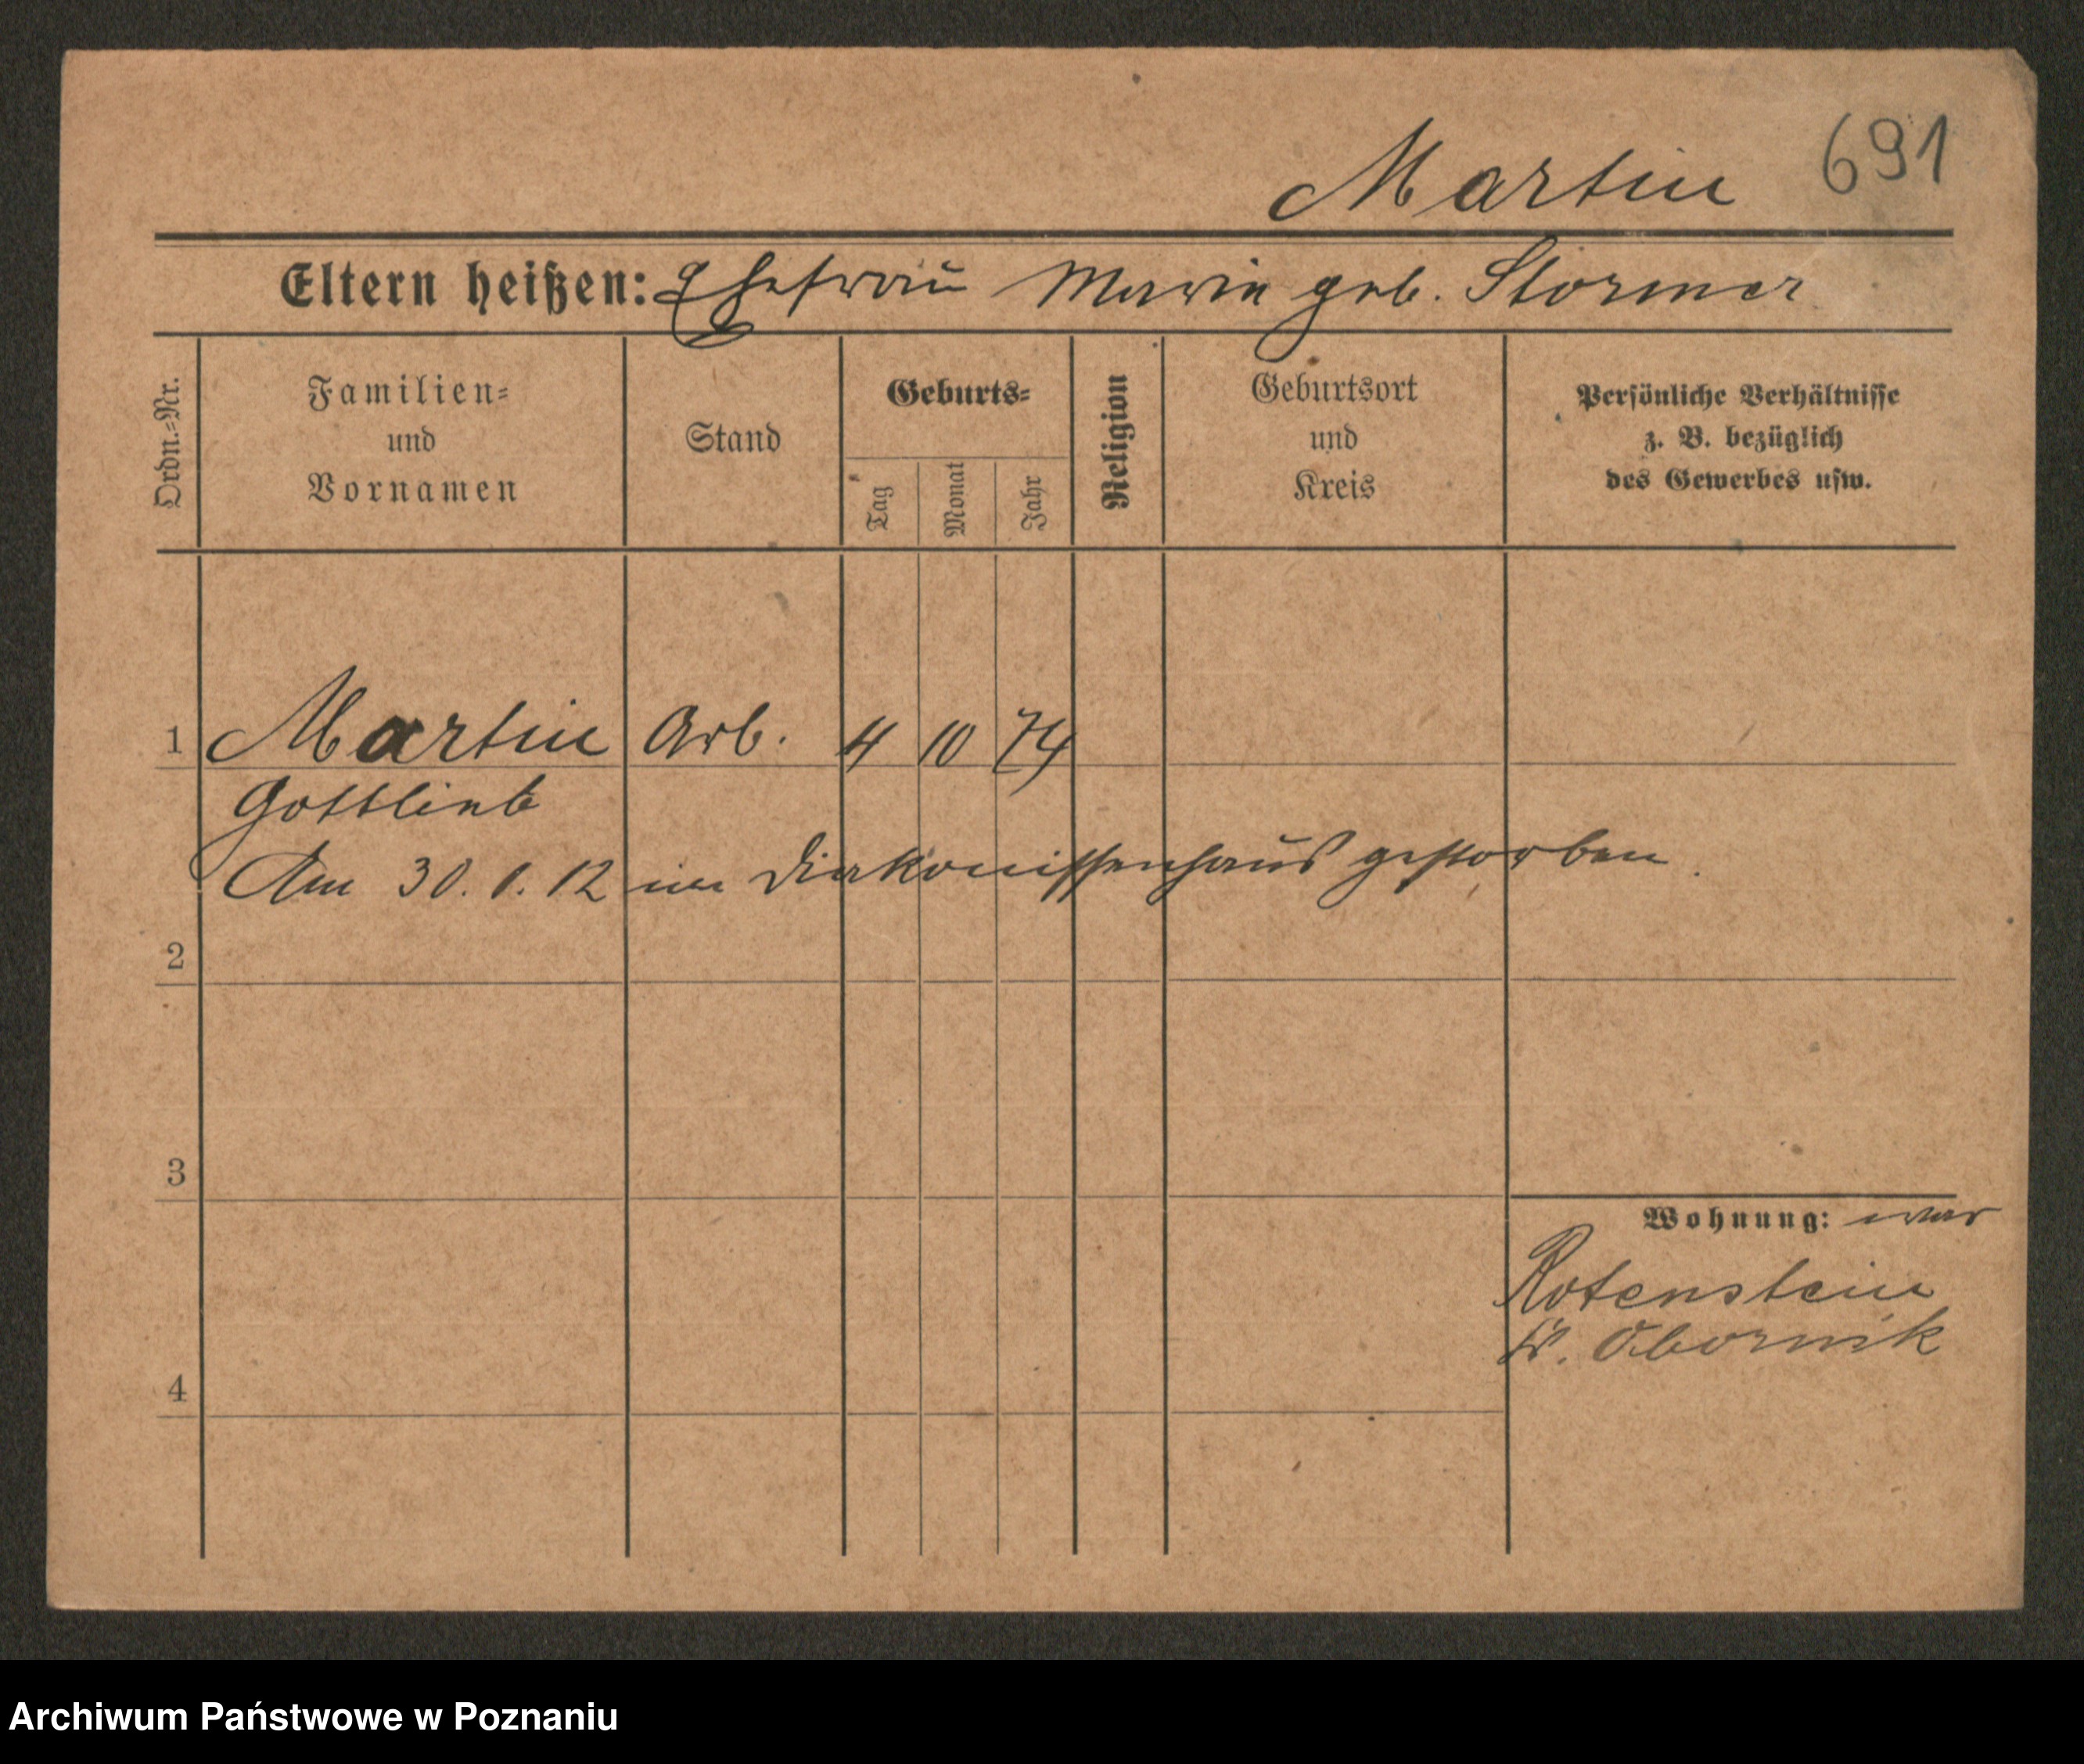 Martin 691
Eltern heißen: Ehefrau Marie geb. Stormer
Ordn.=Nr.
Familien=
und
Vornamen
Stand
Geburts=
Tag
Monat
Jahr
Religion
Geburtsort
und
Kreis
Persönliche Verhältnisse
z. B. bezüglich
des Gewerbes usw.
1 Martin Arb. 4 10 74
Gottlieb
Am 30. 1. 12 im Diakonissenhaus gestorben.
2
3
Wohnung: war
Rotenstein
Kr. Obornik
4
Archiwum Państwowe w Poznaniu